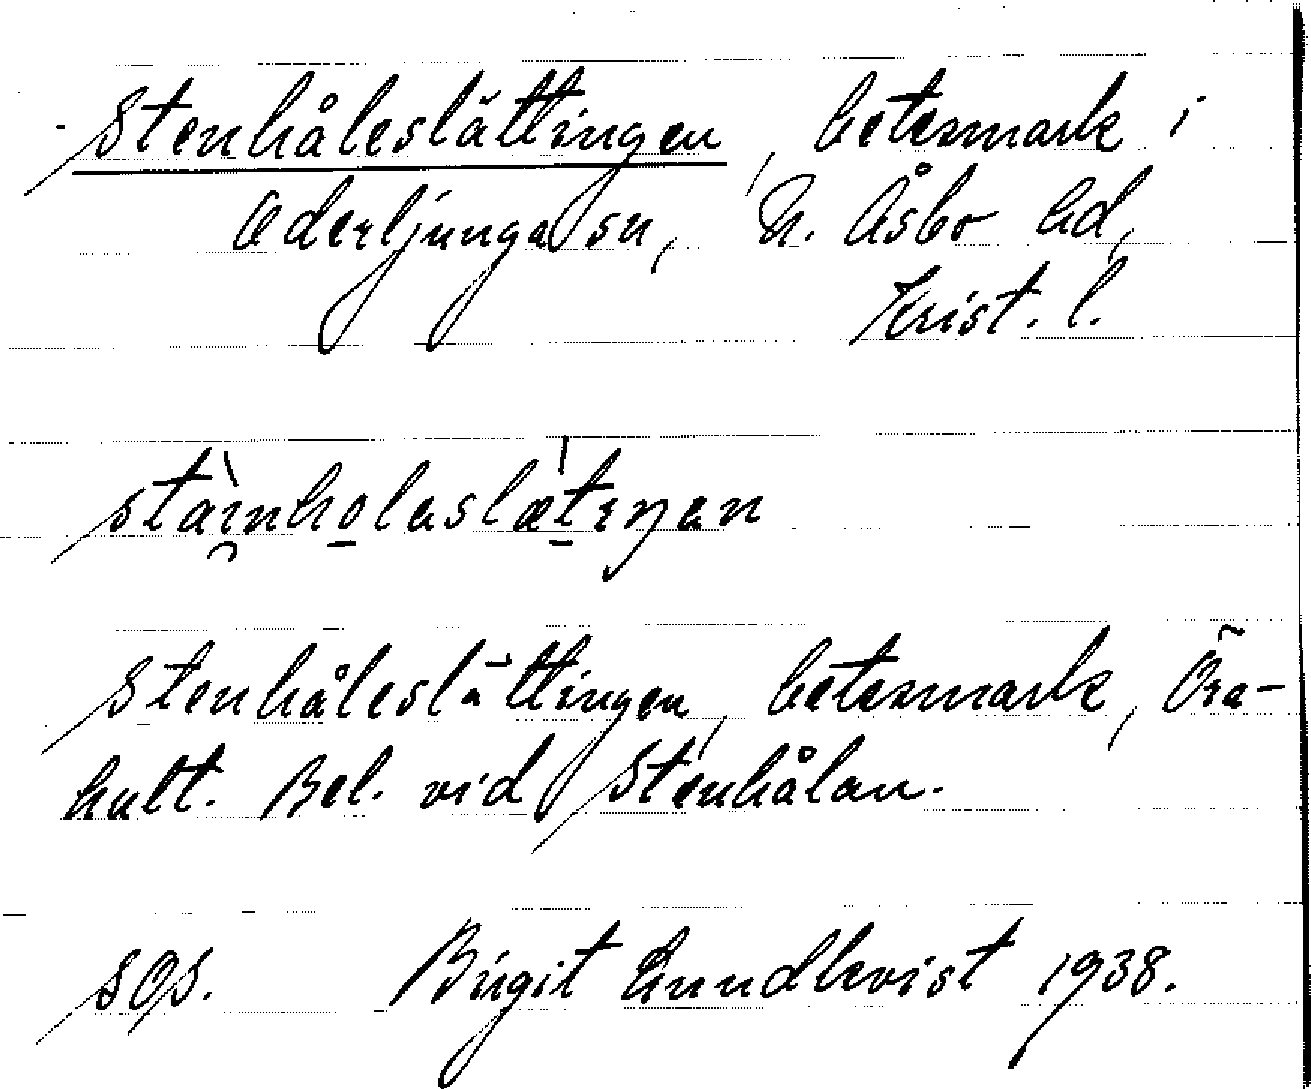 Stenhåleslättingen, betesmark i
Oderljunga sn, N. Åsbo hd,
Krist. l.
stài̯nho̱laslæ̍ṯıŋan
Stenhåleslättingen, betesmark, Öra-
hult. Bel. vid Stenhålan.
SOS. Birgit Lundkvist 1938.